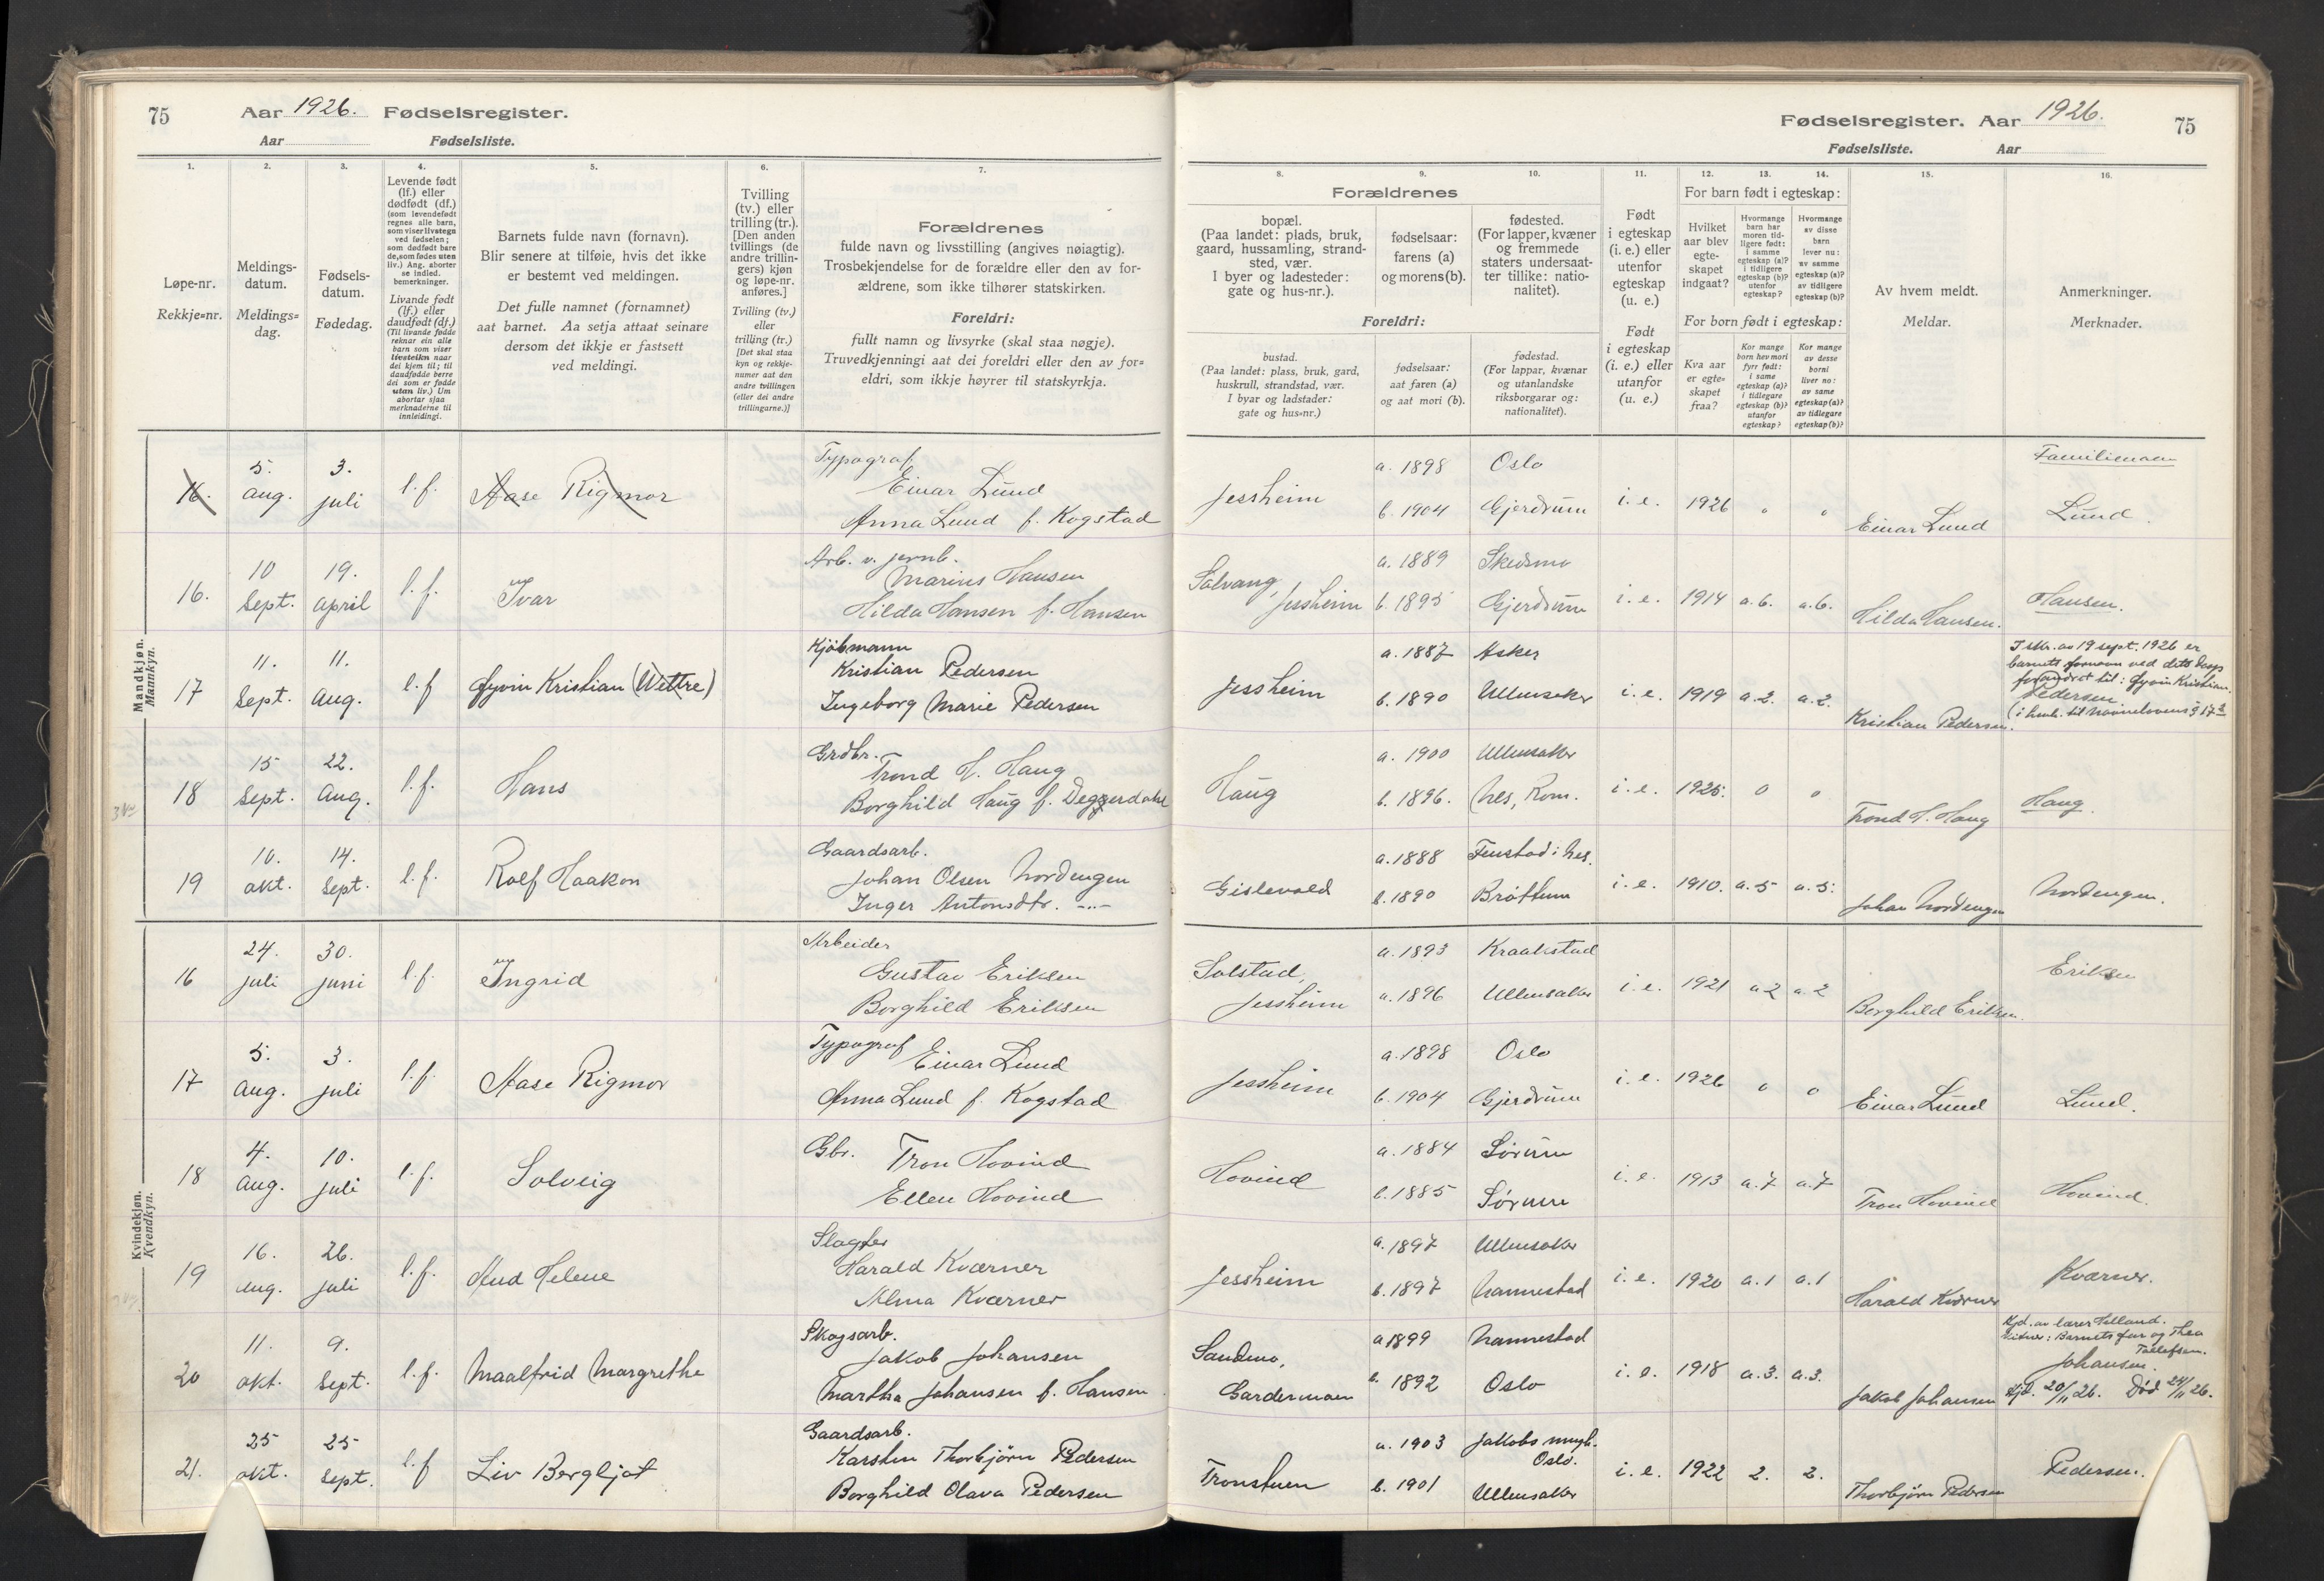 75 Aar 1926. Fødselsregister.
Aar Fødselsliste.
1. 2. 3. 4. 5. 6. 7.
Løpe-nr.
Rekkje=nr.
Meldings-
datum.
Meldings=
dag.
Fødsels-
datum.
Fødedag.
Levende født
(lf.) eller
dødfødt (df.)
(som levendefødt
regnes alle barn,
som viser livstegn
ved fødselen;
som dødfødt bare
de, som fødes uten
liv.) Ang. aborter
se indled.
bemerkninger.
Livande født
(lf.) eller
daudfødt (df.)
(Til livande fødde
reknar ein alle
barn som viser
livsteikn naar
dei kjem til; til
daudfødde berre
dei som er fødde
utan liv.) Um
abortar sjaa
merknaderne til
innleidingi.
Barnets fulde navn (fornavn).
Blir senere at tilføie, hvis det ikke
er bestemt ved meldingen.
Det fulle namnet (fornamnet)
aat barnet. Aa setja attaat seinare
dersom det ikkje er fastsett
ved meldingi.
Tvilling
(tv.) eller
trilling (tr.).
[Den anden
tvillings (de
andre trillin-
gers) kjøn
og løpe-nr.
anføres.]
Tvilling (tv.)
eller
trilling (tr.)
[Det skal staa
kyn og rekkje-
numer aat den
andre tvillingen
(eller dei andre
trillingarne.)]
Forældrenes
fulde navn og livsstilling (angives nøiagtig).
Trosbekjendelse for de forældre eller den av for-
ældrene, som ikke tilhører statskirken.
Foreldri:
fullt namn og livsyrke (skal staa nøgje).
Truvedkjenningi aat dei foreldri eller den av for=
eldri, som ikkje høyrer til statskyrkja.
Mandkjøn.
Mannkyn.
16. 5. aug. 3. juli l.f. Aase Rigmor
Typograf
Einar Lund
Anna Lund f. Kogstad
16. 10 Sept. 19. april l.f. Ivar
Arb. v. jernb.
Marius Hansen
Hilda Hansen f. Hansen
17 11. Sept. 11. aug. l.f Øyvin Kristian (Wettre)
Kjøbmann
Kristian Pedersen
Ingeborg Marie Pedersen
18 15 Sept. 22. Aug. l.f. Hans
Grdbr.
Trond H. Haug
Borghild Haug f. Deggerdahl
19 10. okt. 14. Sept. l.f. Rolf Haakon
Gaardsarb.
Johan Olsen Nordengen
Inger Antonsdtr. -„-
Kvindekjøn.
Kvendkyn.
16 24. juli 30. juni l.f. Ingrid
Arbeider
Gustav Eriksen
Borghild Eriksen
17 5. aug. 3. juli l.f. Aase Rigmor
Typograf Einar Lund
Anna Lund f. Kogstad
18 4. aug. 10. juli l.f. Solveig
Gbr. Tron Hovind
Ellen Hovind
19 16. aug. 26. juli l.f. Aud Helene
Slagter
Harald Kværner
Alma Kværner
20 11. okt. 9. Sept. l.f. Maalfrid Margrethe
Skogsarb.
Jakob Johansen
Martha Johansen f. Hansen
21. 25 okt. 25 Sept. l.f Liv Bergljot
Gaardsarb.
Karsten Thorbjørn Pedersen
Borghild Olava Pedersen
Fødselsregister. Aar 1926. 75
Fødselsliste. Aar
8. 9. 10. 11. 12. 13. 14. 15. 16.
Forældrenes
bopæl.
(Paa landet: plads, bruk,
gaard, hussamling, strand-
sted, vær.
I byer og ladesteder:
gate og hus-nr.).
fødselsaar:
farens (a)
og morens (b).
fødested.
(For lapper, kvæner
og fremmede
staters undersaat-
ter tillike: natio-
nalitet).
Foreldri:
bustad.
(Paa landet: plass, bruk, gard,
huskrull, strandstad, vær.
I byar og ladstader:
gate og hus=nr.)
fødselsaar:
aat faren (a)
og aat mori (b).
fødestad.
(For lapper, kvænar
og utanlandske
riksborgarar og:
nationalitet).
Født
i egteskap
(i. e.) eller
utenfor
egteskap
(u. e.)
Født
i egteskap
(i. e.) eller
utanfor
(u. e.)
For barn født i egteskap:
Hvilket
aar blev
egte-
skapet
indgaat?
Hvormange
barn har
moren tid-
ligere født:
i samme
egteskap (a)?
i tidligere
egteskap (b)?
utenfor
egteskap?
Hvormange
av disse
barn
lever nu:
av samme
egteskap (a)?
av tidligere
egteskap (b)?
For born født i egteskap:
Kva aar
er egte=
skapet
fraa?
Kor mange
born hev mori
fyrr født:
i same
egteskap (a)?
i tidlegare
egteskap (b)?
utanfor
egteskap?
Kor mange
av desse
borni
liver no:
av same
egteskap (a)?
av tidlegare
egteskap (b)?
Av hvem meldt.
Meldar.
Anmerkninger.
Merknader.
Jessheim a. 1898 Oslo
b. 1904 Gjerdrum i. e. 1926 0 0 Einar Lund
Familienavn
Lund.
Solvang, Jessheim a. 1889 Skedsmo
b. 1895 Gjerdrum i. e. 1914 a. 6. a. 6. Hilda Hansen. Hansen.
Jessheim a. 1887 Asker
b. 1890 Ullensaker i. e. 1919 a. 2. a. 2. Kristian Pedersen.
I skr. av 19 sept. 1926 er
barnets fornavn ved dets daap
forandret til: Øyvin Kristian.
Pedersen
(i henh. til Navnelovens § 17
Haug a. 1900 Ullensaker
b. 1896. Nes, Rom. i. e. 1925. 0 0 Trond H. Haug Haug.
Gislevold a. 1888 Fenstad i Nes.
b. 1890 Brøttum i. e. 1910. a. 5 a. 5. Johan Nordengen Nordengen.
Solstad, Jessheim a. 1893 Kraakstad
a. 1896 Ullensaker i. e. 1921 a 2 a. 2 Borghild Eriksen. Eriksen
Jessheim a. 1898 Oslo
b. 1904 Gjerdrum i. e. 1926 0 0 Einar Lund Lund.
Hovind a. 1884 Sørum
b. 1885 Sørum i. e. 1913 a. 7 a. 7 Tron Hovind Hovind.
Jessheim a. 1897 Ullensaker
b. 1897 Nannestad i. e. 1920 a. 1 a. 1 Harald Kværner Kværner.
Sandmo, Gardermoen a 1899 Nannestad
1892 Oslo i. e. 1918 a. 3. a. 3. Jakob Johansen
Hjd. av lærer Helland.
Vidner: Barnets far og Thea
Tollefsen.
Johansen.
Hjd. 20/11 26. Død 24/11 26.
Tronstuen a. 1903 Jakobs mngh. Oslo.
b. 1901 Ullensaker i. e. 1922 2. 2. Thorbjørn Pedersen Pedersen.